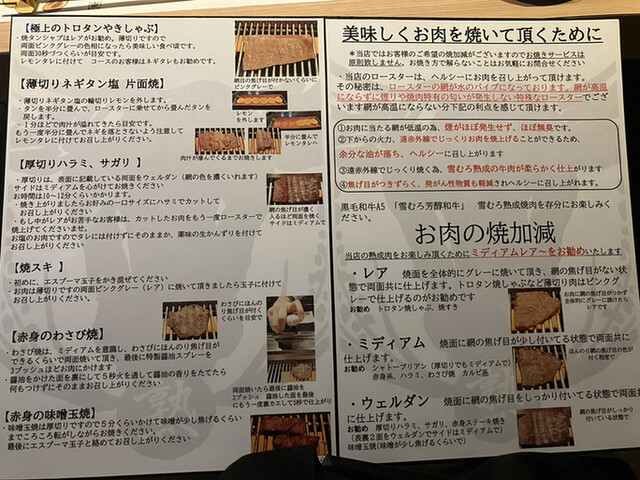 【極上のトロタンやきしゃぶ】
・焼タンシャブはレアがお勧め。薄切りですので
両面ピンクグレーの色相になったら美味しい食べ頃です。
両面30秒づつくらいが目安です。
レモンタレに付けて コースのお客様はネギタレもお勧めです。
網目の焦げ目が付かないくらいに
ピンクグレーで
【薄切りネギタン塩 片面焼】
・薄切りネギタン塩の輪切りレモンを外します。
・タンを半分に畳んで、ロースターに乗せてから畳んだタンを
戻します。
・１分ほどで肉汁が溢れてきたら目安です。
もう一度半分に畳んでネギを落とさないよう注意して
レモンタレに付けてお召し上がりください。
レモン
を外します
半分に畳んで
レモンタレへ
肉汁が溢んでくるまでお焼きします
【厚切りハラミ、サガリ 】
・厚切りは、表面に記載している両面をウェルダン（網の色を濃くいれます）
サイドはミディアムを心がけてお焼きください。
お時間は10～12分くらいかかります。
・焼き上がりましたらお好みの一口サイズにハサミでカットして
お召し上がりください。
・もし中がレアがお苦手なお客様は、カットしたお肉をもう一度ロースターで
焼上げてくださいませ。
お塩のお肉ですのでタレには付けずにそのままか、薬味の生かんずりを付けて
お召し上がりください。
網の焦げ目が濃く
入るほど両面を焼く
サイドはミディアムで
【焼スキ 】
・初めに、エスプーマ玉子をかき混ぜてください
・お肉は薄切りですの両面ピンクグレー（レア）に焼いて頂きましたら玉子に付けて
お召し上がりください。
わさびにほんの
り焦げ目が付く
くらいを目安で
【赤身のわさび焼】
・わさび焼は、ミディアムを意識し、わさびにほんのり焦げ目が
できるくらいで両面焼いて頂き、最後に特製醤油スプレーを
3プッシュほどお肉にかけます
・醤油をかけた面を裏にして５秒火を通して醤油の香りをたてたら
何もつけずにそのままお召し上がりください。
両面焼いたら最後に醤油を
3プッシュ 醤油した面を最後
にもう一度裏カエして5秒で仕上がり
【赤身の味噌玉焼】
・味噌玉焼は厚切りですので５分くらいかけて味噌が少し焦げるくらい
までころころ転がしながらお焼きください。
最後にエスプーマ玉子と絡めてお召し上がりください。
美味しくお肉を焼いて頂くために
＊当店ではお客様のご希望の焼加減がございますのでお焼きサービスは
原則致しません。お焼き方で解らないことはお気軽にお問合せください
・当店のロースターは、ヘルシーにお肉を召し上がって頂けます。
その秘密は、ロースターの網が水のパイプになっております。網が高
温にならずに煙りや焼肉特有の匂いが発生しない特殊なロースターでござ
います網が高温にならない分下記の利点を感じて頂けます。
①お肉に当たる網が低温の為、煙がほぼ発生せず、ほぼ無臭です。
②下からの火力、遠赤外線でじっくりお肉を焼上げることができるため、
余分な油が落ち、ヘルシーに召し上がります
③遠赤外線でじっくり焼く為、雪むろ熟成の牛肉が柔らかく仕上がります
④焦げ目がつきずらく、発がん性物質も軽減されヘルシーに召上がれます。
黒毛和牛A5 「雪むろ芳醇和牛」 雪むろ熟成焼肉を存分にお楽しみく
ださい。
お肉の焼加減
当店の熟成肉をお楽しみ頂くためにミディアムレア～をお勧めいたします
・レア 焼面を全体的にグレーに焼いて頂き、網の焦げ目がない状
態で両面共に仕上げます。トロタン焼しゃぶなど薄切り肉はピンクグ
レーで仕上げるのがお勧めです
お勧め トロタン焼しゃぶ、焼すき
お肉に網の焦げ目をつかず
全体的にグレーに焼けたら
レアです
・ミディアム 焼面に網の焦げ目が少し付いてる状態で両面共に
仕上げます。
お勧め シャトーブリアン（厚切りでもミディアムで）
赤身系、ハラミ、わさび焼 カルビ系
ほんのり網に焦げ目の色が
付く程度で
・ウェルダン 焼面に網の焦げ目をしっかり付いてる状態で両面
に仕上げます。
お勧め 厚切りハラミ、サガリ、赤身ステーキ焼き
（表裏２面をウェルダンでサイドはミディアムで）
味噌焼（味噌が少し焦げるくらいで）
網の焦げ目がしっかり
付いている状態で